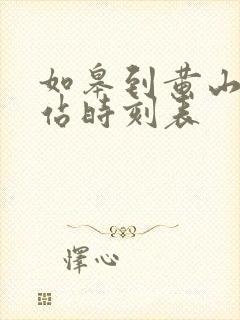 如皋到黄山
佔時刻表
怿心